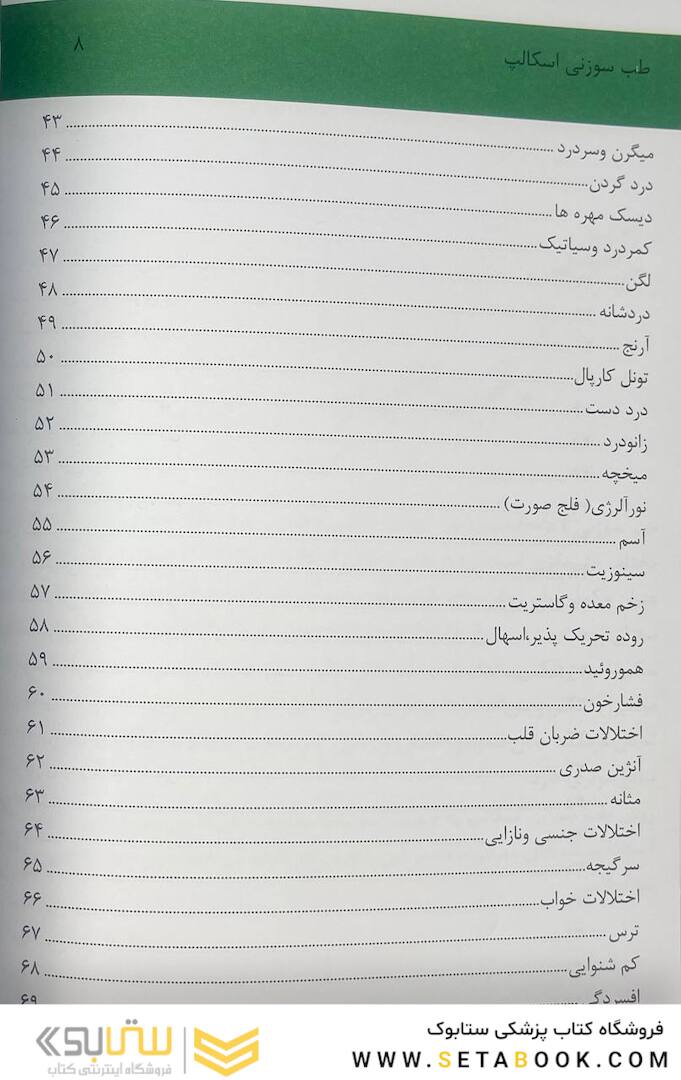 طب سوزنی اسکالپ ۸
میگرن وسردرد ۴۳
درد گردن ۴۴
دیسک مهره ها ۴۵
کمردرد وسیاتیک ۴۶
لگن ۴۷
دردشانه ۴۸
آرنج ۴۹
تونل کارپال ۵۰
درد دست ۵۱
زانودرد ۵۲
میخچه ۵۳
نورآلرژی( فلج صورت) ۵۴
آسم ۵۵
سینوزیت ۵۶
زخم معده وگاستریت ۵۷
روده تحریک پذیر،اسهال ۵۸
هموروئید ۵۹
فشارخون ۶۰
اختلالات ضربان قلب ۶۱
آنژین صدری ۶۲
مثانه ۶۳
اختلالات جنسی ونازایی ۶۴
سرگیجه ۶۵
اختلالات خواب ۶۶
ترس ۶۷
کم شنوایی ۶۸
افسردگی ۶۹
فروشگاه کتاب پزشکی ستابوک
WWW.SETABOOK.COM
ستابوک
فروشگاه اینترنتی کتاب